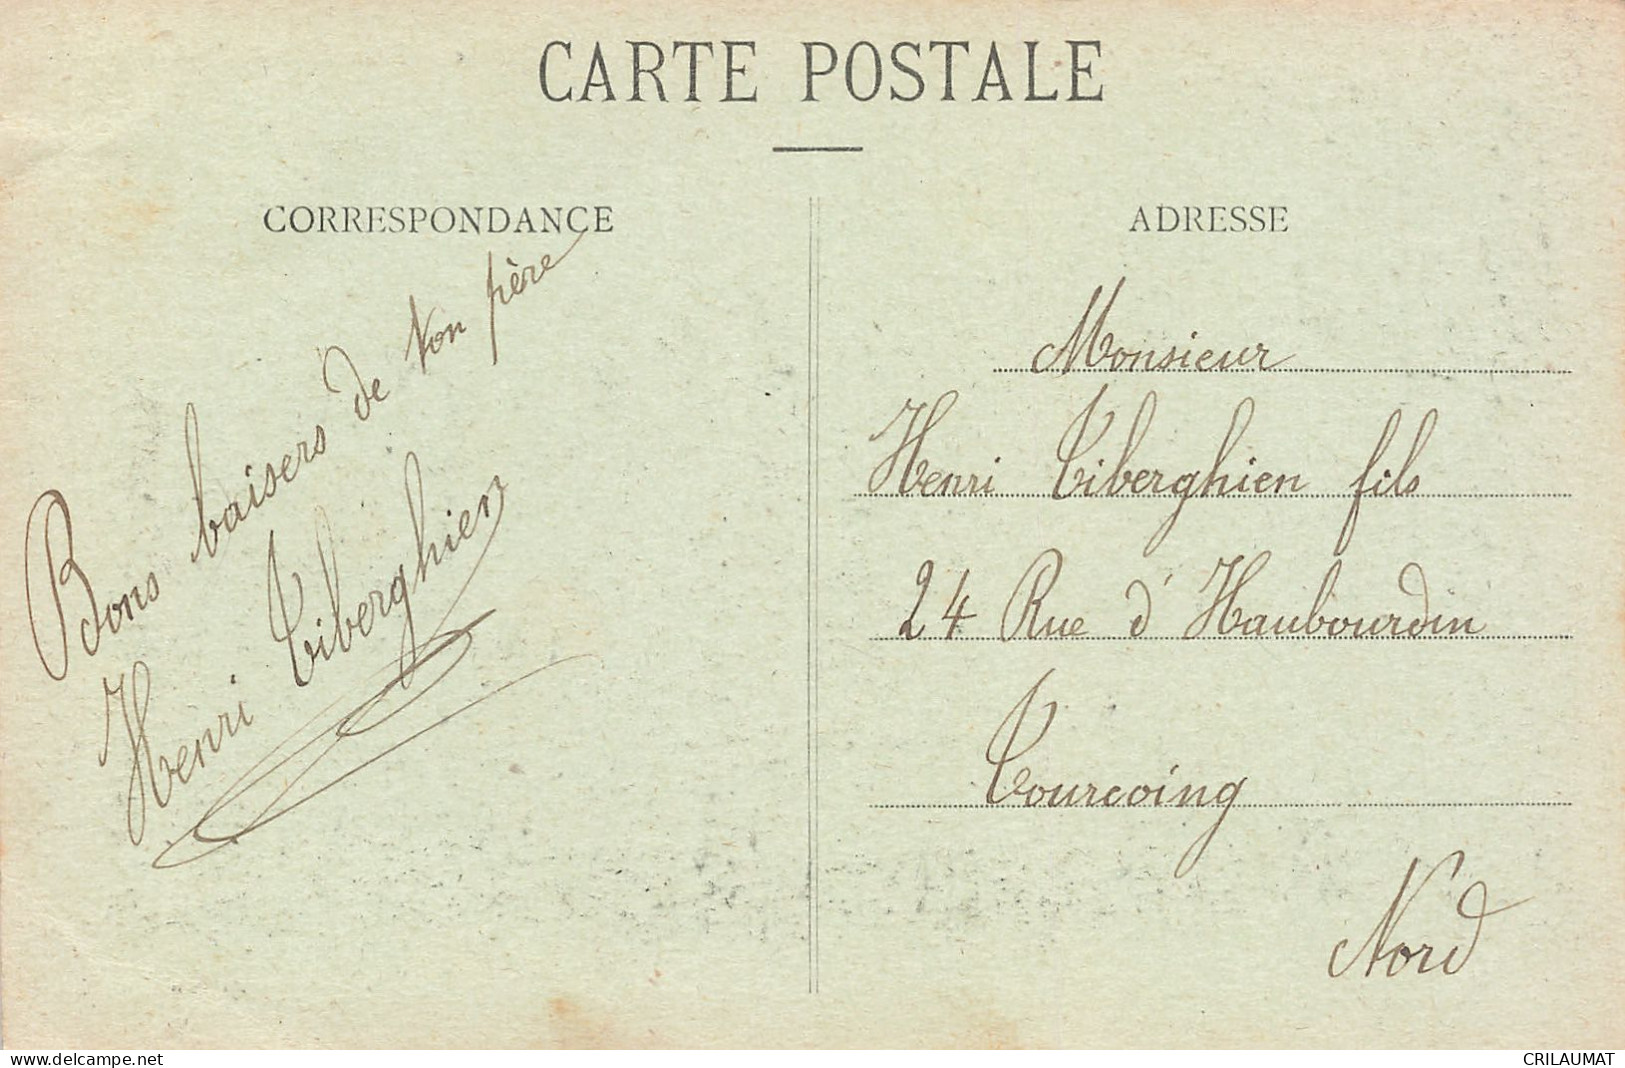 CARTE POSTALE
CORRESPONDANCE
Bons baisers de ton père
Henri Tiberghien
ADRESSE
Monsieur
Henri Tiberghien fils
24 Rue d'Haubourdin
Tourcoing
Nord
www.delcampe.net
CRILAUMAT